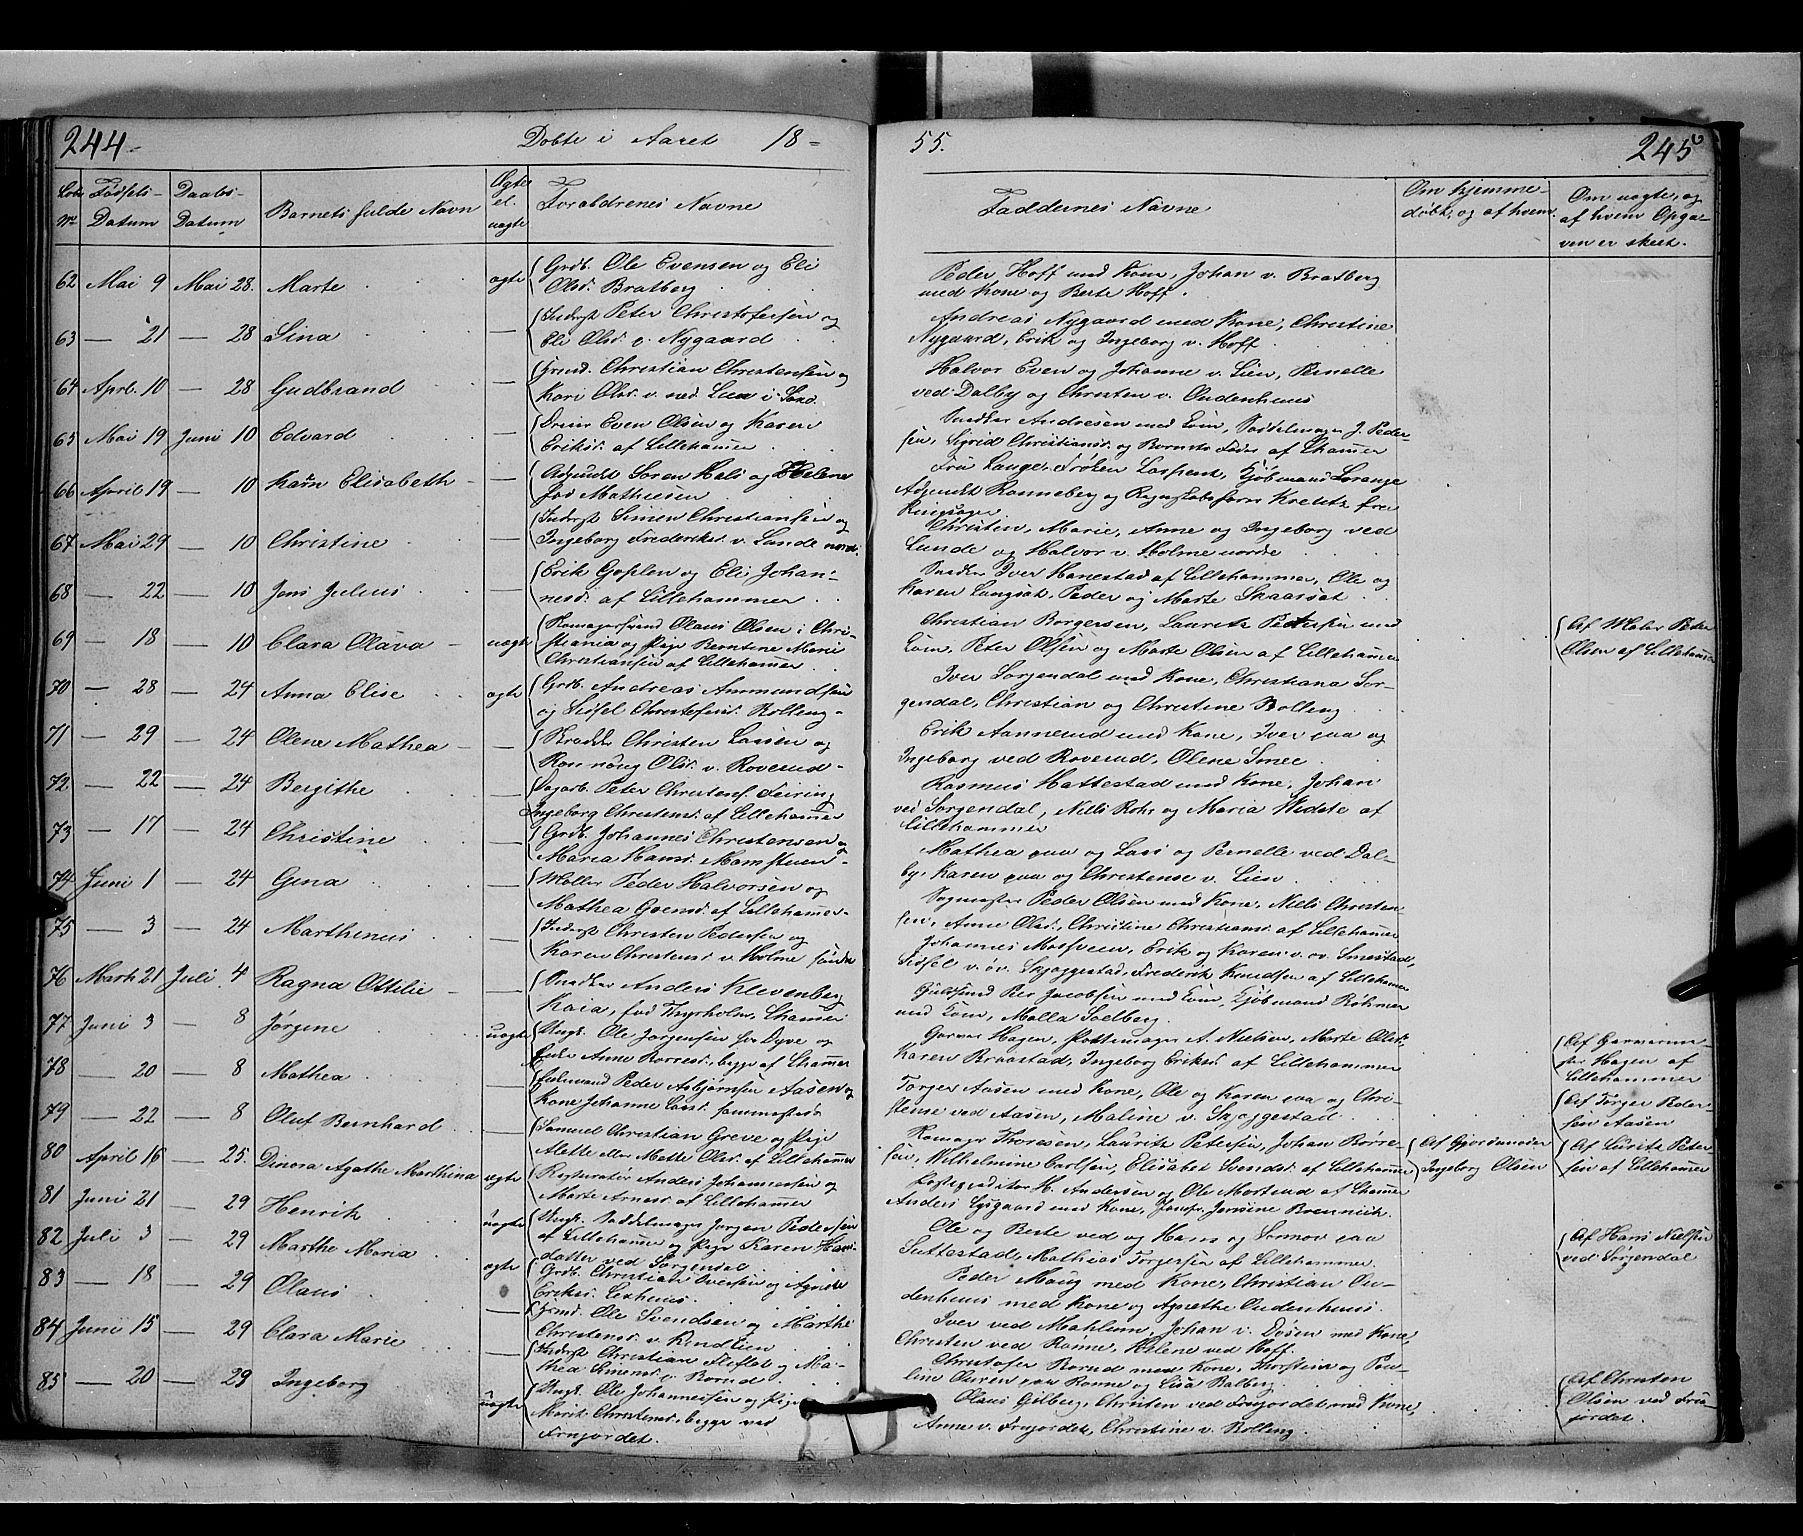 244
Døbte i Aaret 18
55.
245
Løbe Nr
Fødsels-Datum
Daabs-Datum
Barnets fulde Navn
Ægte el. uægte
Forældrenes Navne
Faddernes Navne
Om hjemmedøbt, og af hvem
Om uægte, og af hvem Opgaven er skeet.
62 Mai 9 Mai 28. Marte ægte Grdb. Ole Evensen og Eli
Olsd. Bratberg
Peder Hoff med Kone, Johan v. Bratberg
med Kone og Berte Hoff.
63 — 21 — 28 Sina — Inderst Peter Christofersen og
Eli Olsd. v. Nygaard
Andreas Nygaard med Kone, Christine
Nygaard, Erik og Ingeborg v. Hoff
64 Apr. 10 — 28 Gudbrand — Christian Christensen og
Kari Olsd. v. ned. Lien
Halvor Even og Johanne v. Lien, Pernelle
ved Dalby og Christen v. Oudenhuus
65 Mai 19 Juni 10 Edvard — Even Olsen og Karen
Eriksd. af Lillehammer
Snedker Andresen med Kone, Sadelmager J. Peder-
sen, Sigrid Christiansd. og Barnets Fader af Lhammer
66 April 19 — 10 Karn Elisabeth — Adjunkt Søren Hals og Helene
fød Mathiesen
Fru Lange, Frøken Kjøbmand Lorange
Adjunkt Ranneberg og fra
Ringsager
67 Mai 29 — 10 Christine — Inderst Simen Christiansen og
Ingeborg Frederiksd. v. Lunde nord.
Christen, Marie, Anne og Ingeborg ved
Lunde og Halvor v. Holme nordre
68 — 22 — 10 Jens Julius — Erik og Eli Johan-
nesd. af Lillehammer
Snedker Iver Hanestad af Lillehammer, Ole og
Karen Langsæt, Peder og Marte Skaarsæt
69 — 18 — 10 Clara Olava uægte Olaus Olsen i Chri-
stiania og Pige Berntine Marie
Christiansen af Lillehammer
Christian Borgersen, Lauritz Petersen med
Kone, Peter Olsen og Marte Olsen af Lillehammer
Af Maler Peder
Olsen af Lillehammer
70 — 28 — 24 Anna Elise ægte Grdb. Andreas Ammundsen
og Sidsel Christofersd. Rolleng
Iver Sørgendal med Kone, Christiana Sør-
gendal, Christian og Christine Rolleng
71 — 29 — 24 Olene Mathea — Christen Larsen og
Rønnaug Olsd. v. Roverud
Erik Aannerud med Kone, Iver paa og
Ingeborg ved Roverud, Olene Smee
72 — 22 — 24 Bergithe — Dagarb. Peter Christens. Feiring
Ingeborg Christensd. af Lillehammer
Rasmus Hattestad med Kone, Johan
ved Sørgendal, Niels Rohr og Maria Wedste af
Lillehammer
73 — 17 — 24 Christine — Grdb. Johannes Christensen og
Maria Hansd.
Mathea paa og Lars og Pernelle ved Dal-
by, Karen paa og Christense v. Lien
74 Juni 1 — 24 Gina — Møller Peder Halvorsen og
Mathea af Lillehammer
Peder Olsen med Kone, Niels Christen-
sen, Anne Olsd., Christine Christiansd. af Lillehammer
75 — 3 — 24 Marthinus — Inderst Christen Pedersen og
Karen Christensd. v. Holme søndre
Johannes Mosveen, Erik og Karen v. øv. Smestad,
Sidsel v. øv. Skjaggestad, Frederik Knudsen af Lillehammer
76 Marti 21 Juli 4 Ragna Ottilie — Snedker Anders Klevenberg
Kaia, fød Thyrholm, Lhammer
Per Jacobsen med Kone, Kjøbmand Röhmer
med Kone, Malla Solberg.
77 Juni 3 — 8 Jørgine uægte Ungk. Ole Jørgensen fra Dyve og
Anne begge af Lhammer
Garver Hagen, Pottemager A. Nielsen, Marte Olsd.
Karen Braastad, Ingeborg Eriksd. af Lillehammer
Af Garverme-
ster Hagen af
Lillehammer
78 — 20 — 8 Mathea — Peder Asbjørnsen Aasen og
Kone Johanne Larsd. sammesteds
Torger Aasen med Kone, Ole og Karen paa og Chri-
stense ved Aasen, Maline v. Skjeggestad
Af Torger Peder-
sen Aasen
79 — 22 — 8 Oluf Bernhard — Samuel Christian Greve og Pige
Alette eller Mette Olsd. af Lillehammer
Thoresen, Lauritz Petersen, Johan Børre-
sen, Wilhelmine Carlsen, Elisabet Svendsd. af Lillehammer
Af Gjordemoder
Ingeborg Olsen
Af Lauritz Peter-
sen af Lillehammer
80 April 16 — 25. Dinora Agathe Marthina ægte Anders Johannesen og
Marte Arnesd. af Lillehammer
H. Andersen og Ole Mortstad af Lhammer
Anders Lysgaard med Kone, Jomfr. Jensine Brennick.
81 Juni 21 — 29 Henrik uægte Ungk. Saddelmager Jørgen Pedersen
af Lillehammer og Pige Karen Hans-
datter ved Sørgendal
Ole og Berte ved og Hans og paa
Suttestad, Mathias Torgersen af Lillehammer.
Af Hans Nielsen
ved Sørgendal
82 Juli 3 — 29 Marthe Maria ægte Grdb. Christian Iversen og Agnethe
Eriksd.
Peder Haug med Kone, Christian Ou-
denhuus med Kone og Agnethe Oudenhuus.
83 — 18 — 29 Olaus — Ole Svendsen og Marthe
Christensd. v. Rindlien
Iver ved Mæhlum, Johan v. Døsen med Kone,
Christen ved Rønne, Helene ved Hoff.
84 Juni 15 — 29 Clara Marie — Inderst Christian Sletlet og Ma-
thea Simensd. v. Rorud
Christofer Rorud med Kone, Thorsten og Pau-
line paa Rønne og Lisa Balberg.
85 — 20 — 29 Ingeborg uægte Ungk. Ole Johannessen og Pige
Marit Christensd. begge ved
Frujordet.
Olaus Gilberg, Christen ved Frujordet med Kone,
Anne v. Frujordet, Christine v. Rolleng.
Af Christen
Olsen ved Fru-
jordet.